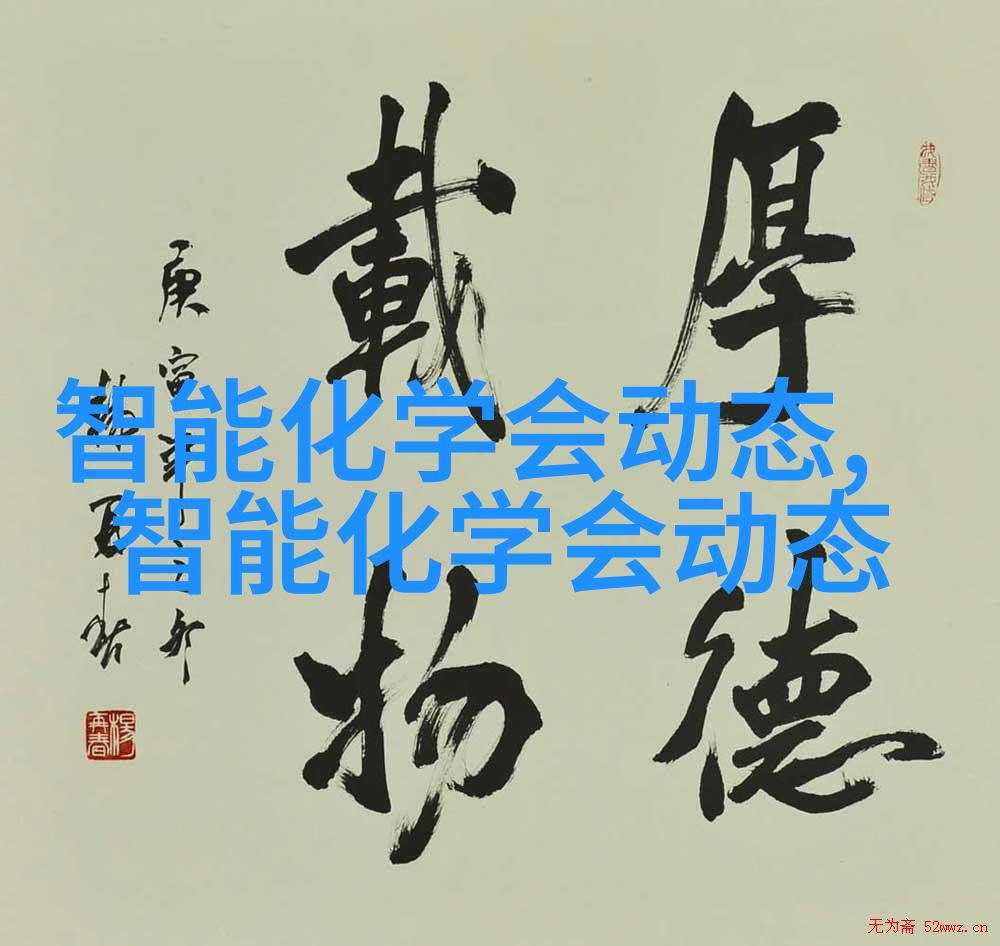 厚德
載物
庚寅年
智能化学会动态,
智能化学会动态
杨再春
无为斋 52wwz.cn